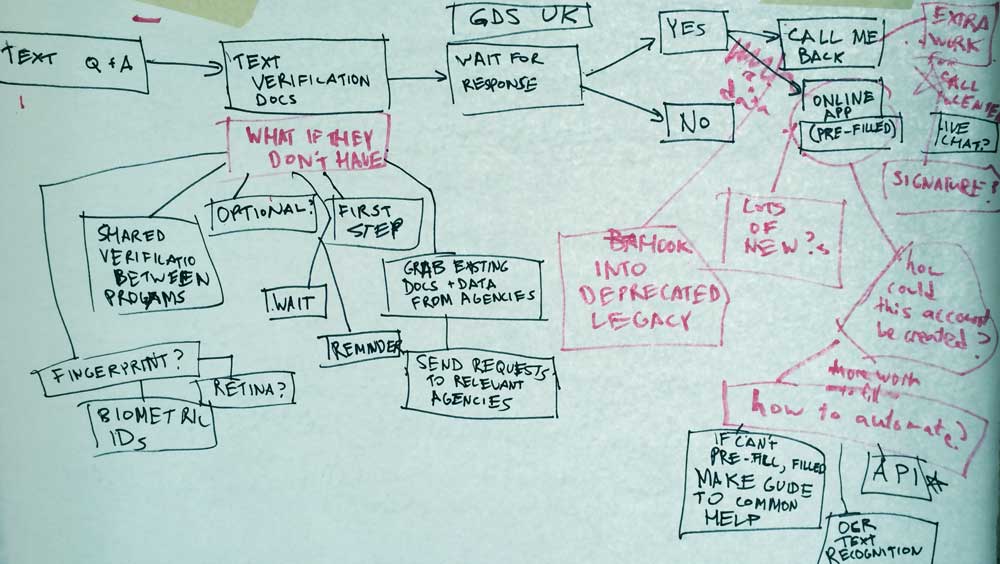 GDS UK
TEXT Q & A
TEXT
VERIFICATION
DOCS
WAIT FOR
RESPONSE
YES
NO
CALL ME
BACK
ONLINE
APP
(PRE-FILLED)
EXTRA
WORK
FOR
CALL
CENTER
LIVE
CHAT?
SIGNATURE?
data
WHAT IF THEY
DON'T HAVE
SHARED
VERIFICATIO
BETWEEN
PROGAMS
OPTIONAL?
FIRST
STEP
WAIT
REMINDER
GRAB EXISTING
DOCS + DATA
FROM AGENCIES
SEND REQUESTS
TO RELEVANT
AGENCIES
FINGERPRINT?
RETINA?
BIOMETRIC
IDs
HOOK
INTO
DEPRECATED
LEGACY
LOTS
OF
NEW?s
how
could
this account
be created?
more worth
to fill
how to automate?
IF CAN'T
PRE-FILL, FILLED
MAKE GUIDE
TO COMMON
HELP
API
OCR
TEXT
RECOGNITION